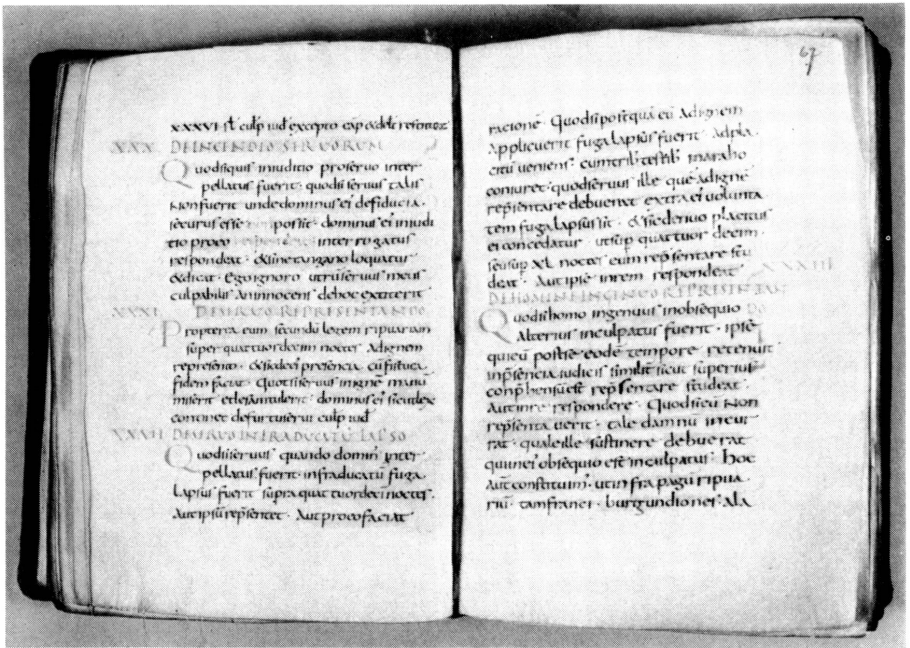 XXXVI sol culp iud excepto cap & delat restituat
XXX DE INCENDIO SERVORUM
Quodsiquis iniuditio proseruo inter
pellatus fuerit · quodsi seruus talis
Non fuerit unde dominus ei defiducia
securus esse possit · dominus ei iniudi
tio proeo interrogatus
respondeat · & sinetangano loquatur
& dicat · Ego ignoro utru seruus meus
culpabilis an innocens dehoc extiterit
XXXI DESERVO REPRESENTANDO
Propterea eum secundu legem ripuariam
super quattuordecim noctes Adignem
represento · & sicadei presencia cufistuca
fidem faciat · Quodsi seruus inigne manu
miserit & lesamtulerit · dominus ei sicut lex
continet defurtu serui culp iud
XXXII DESERVO INFRADUCATU LAPSO
Quodsi seruus quando domin inter
pellatus fuerit · infraducatu fuga
Lapsus fuerit supra quattuordeci noctes ·
Aut ipsu repsentet · Aut proeo faciat
67
racione · Quodsi postqua eu Adignem
Applicuerit fugalapsus fuerit · adpla
citu ueniens cumtrib testib inaraho
coniuret · quodsi seruus ille que adigne
repsentare debuerat extra ei uolunta
tem fugalapsus sit · & sic denuo placitus
ei concedatur · ut sup quattuor decem
seu sup XL noctes eum repsentare stu
deat · Aut ipse inrem respondeat XXXIII
DE HOMINE INGENUO REPRESENTAN
DO
Quodsi homo ingenuus inobsequio
Alterius inculpatus fuerit · ipse
quieu postse eode tempore retenuit
inpsencia iudicis similit sicut superius
conphensu est repsentare studeat ·
Aut inre respondere · Quodsi eu Non
repsentauerit · tale damnu incur
rat · quale ille sustinere debuerat
qui inei obsequio est inculpatus · hoc
aut constituim · ut infra pagu ripua
riu · tam franci · burgundiones · ala